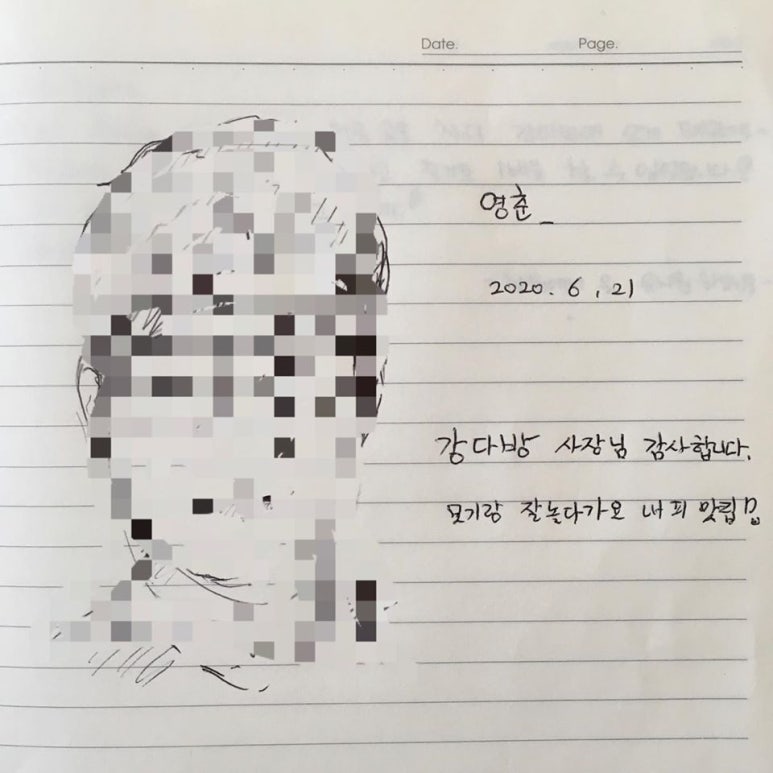 Date. Page.
영춘_
2020. 6. 21
강다방 사장님 감사합니다.
모기랑 잘놀다가오 내 피 맛립